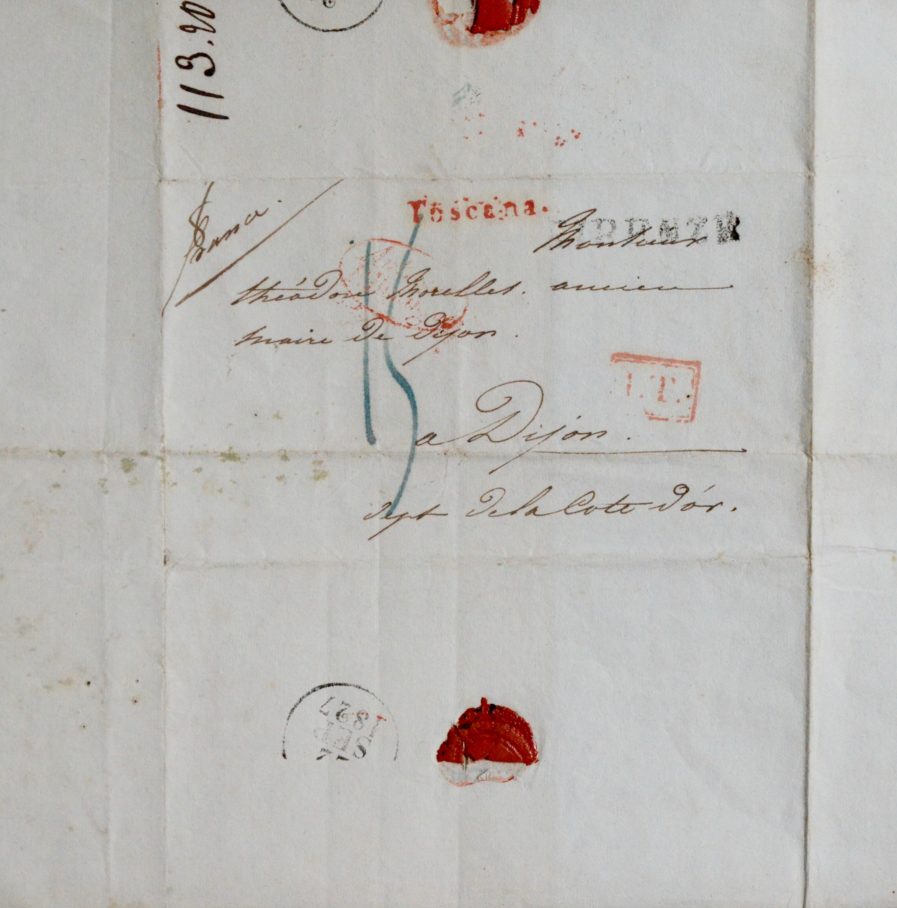 113.20
Toscana.
FIRENZE
Monsieur
théodore Morelles. ancien
maire de Dijon.
I.T.
15
a Dijon.
dept de la Cote d'ór.
1827
SEP